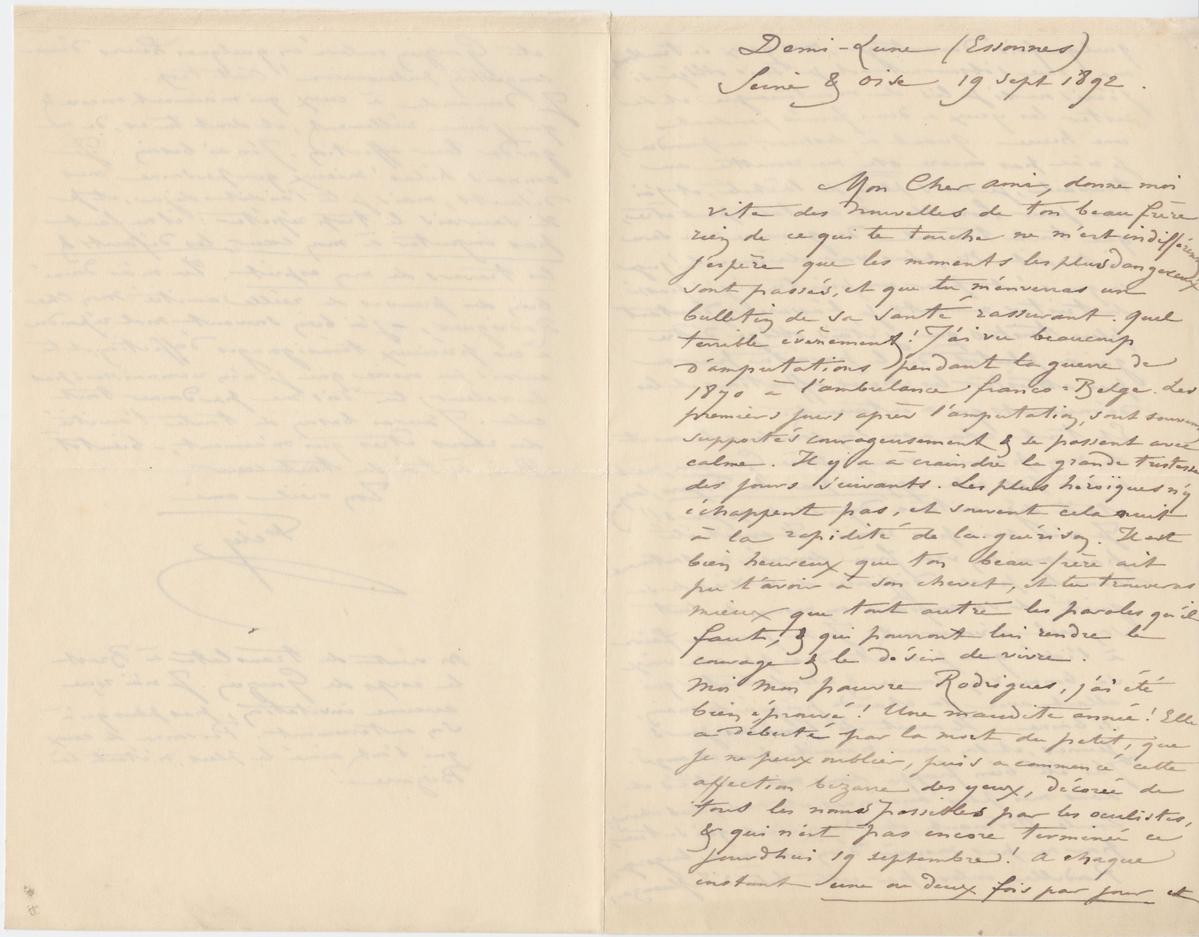 Demi-Lune (Essonnes)
Seine & Oise 19 sept 1892.
Mon Cher ami, donne moi
vite des nouvelles de ton beau frère
rien de ce qui te touche ne m'est indifférent
j'espère que les moments les plus dangereux
sont passés, et que tu m'enverras un
bulletin de sa santé rassurant. quel
terrible évènement! J'ai vu beaucoup
d'amputations pendant la guerre de
1870 à l'ambulance franco-Belge. Les
premiers jours après l'amputation, sont souvent
supportés courageusement & se passent avec
calme. Il y a à craindre la grande tristesse
des jours suivants. Les plus héroïques n'y
échappent pas, et souvent cela nuit
à la rapidité de la guérison. Il est
bien heureux que ton beau-frère ait
pu t'avoir à son chevet, et tu trouveras
mieux que tout autre les paroles qu'il
faut, & qui pourront lui rendre le
courage & le désir de vivre.
Moi mon pauvre Rodrigues, j'ai été
bien éprouvé! Une maudite année! Elle
a débuté par la mort du petit, que
je ne peux oublier, puis a commencé cette
affection bizarre des yeux, décorée de
tous les noms possibles par les oculistes,
& qui n'est pas encore terminée ce
jourdhui 19 septembre! A chaque
instant une ou deux fois par jour et